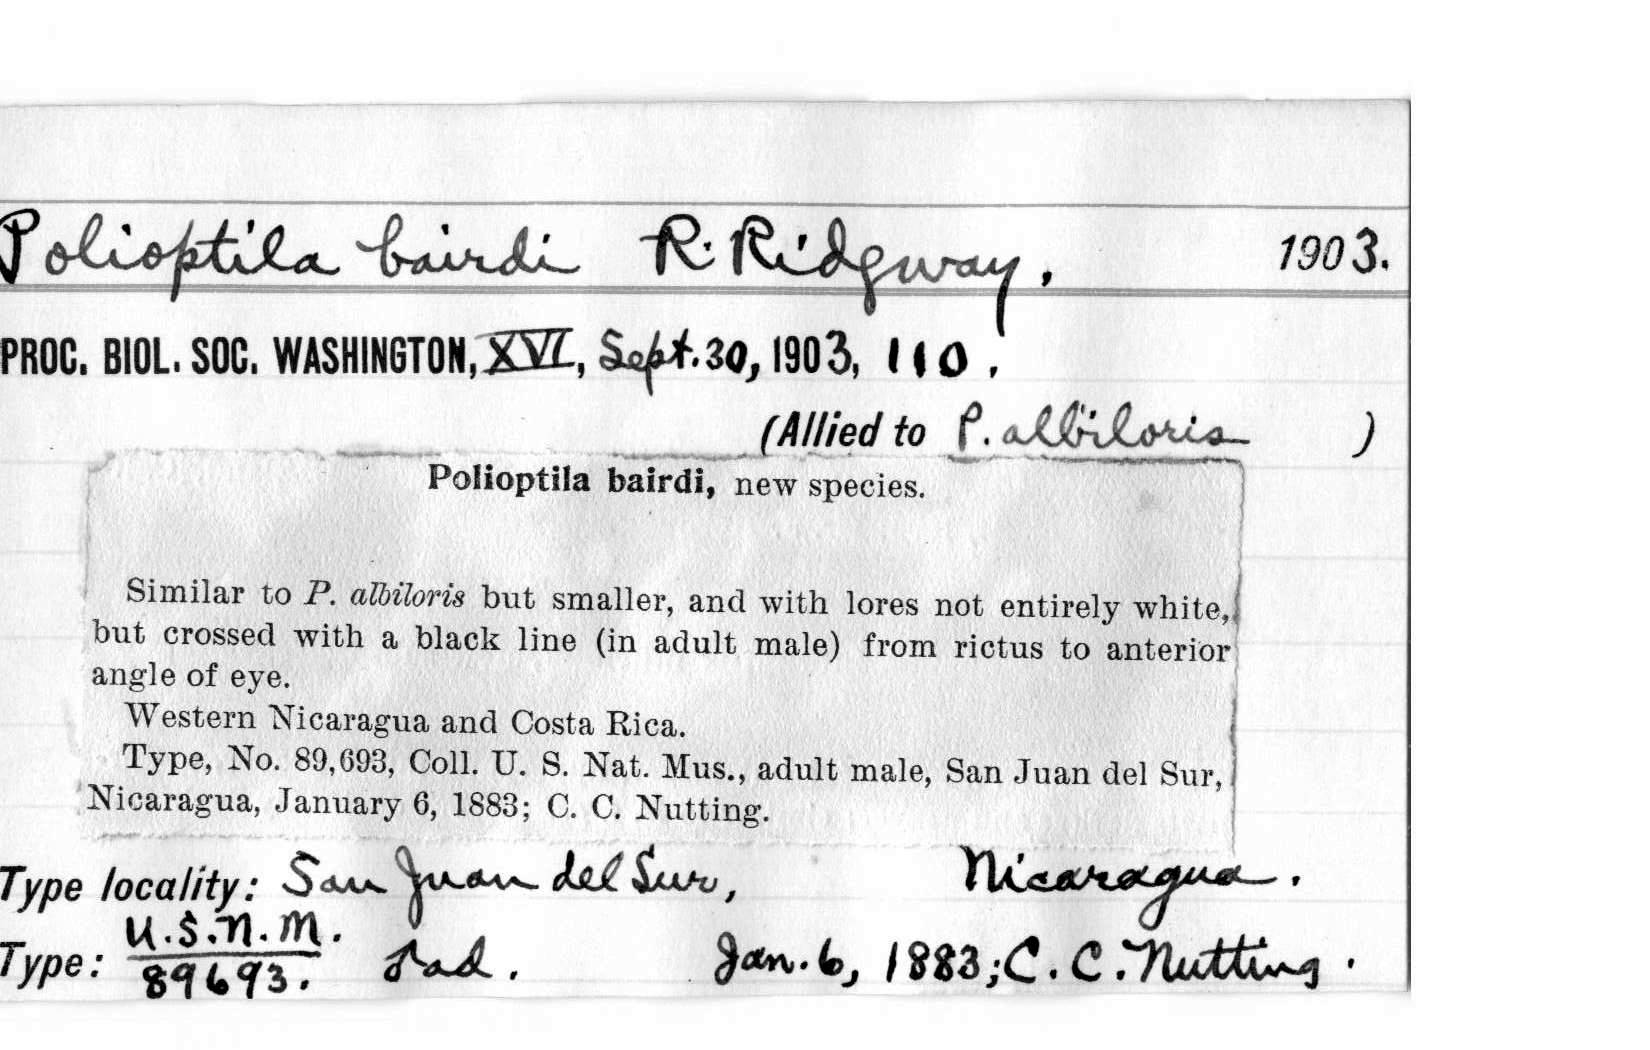 Polioptila bairdi R. Ridgway, 1903.
PROC. BIOL. SOC. WASHINGTON, XVI, Sept. 30, 1903, 110.
(Allied to P. albiloris )
Polioptila bairdi, new species.
Similar to P. albiloris but smaller, and with lores not entirely white,
but crossed with a black line (in adult male) from rictus to anterior
angle of eye.
Western Nicaragua and Costa Rica.
Type, No. 89,693, Coll. U. S. Nat. Mus., adult male, San Juan del Sur,
Nicaragua, January 6, 1883; C. C. Nutting.
Type locality: San Juan del Sur, Nicaragua.
U.S.N.M.
Type: 89693. ad. Jan. 6, 1883; C. C. Nutting.